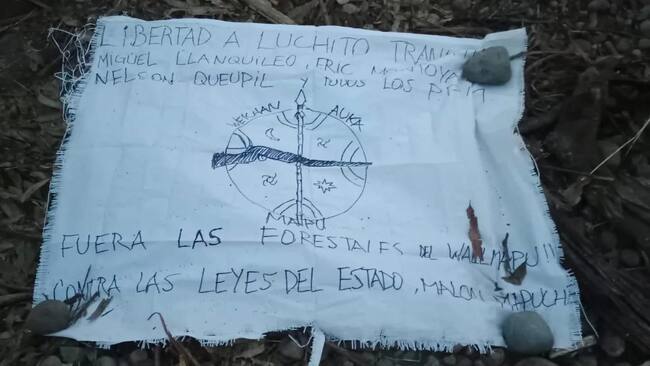 LIBERTAD A LUCHITO
MIGUEL LLANQUILEO, ERIC
NELSON QUEUPIL Y TODOS LOS
AUKA
MAPU
FUERA LAS FORESTALES DEL WALLMAPU!!
CONTRA LAS LEYES DEL ESTADO, MALON MAPUCHE